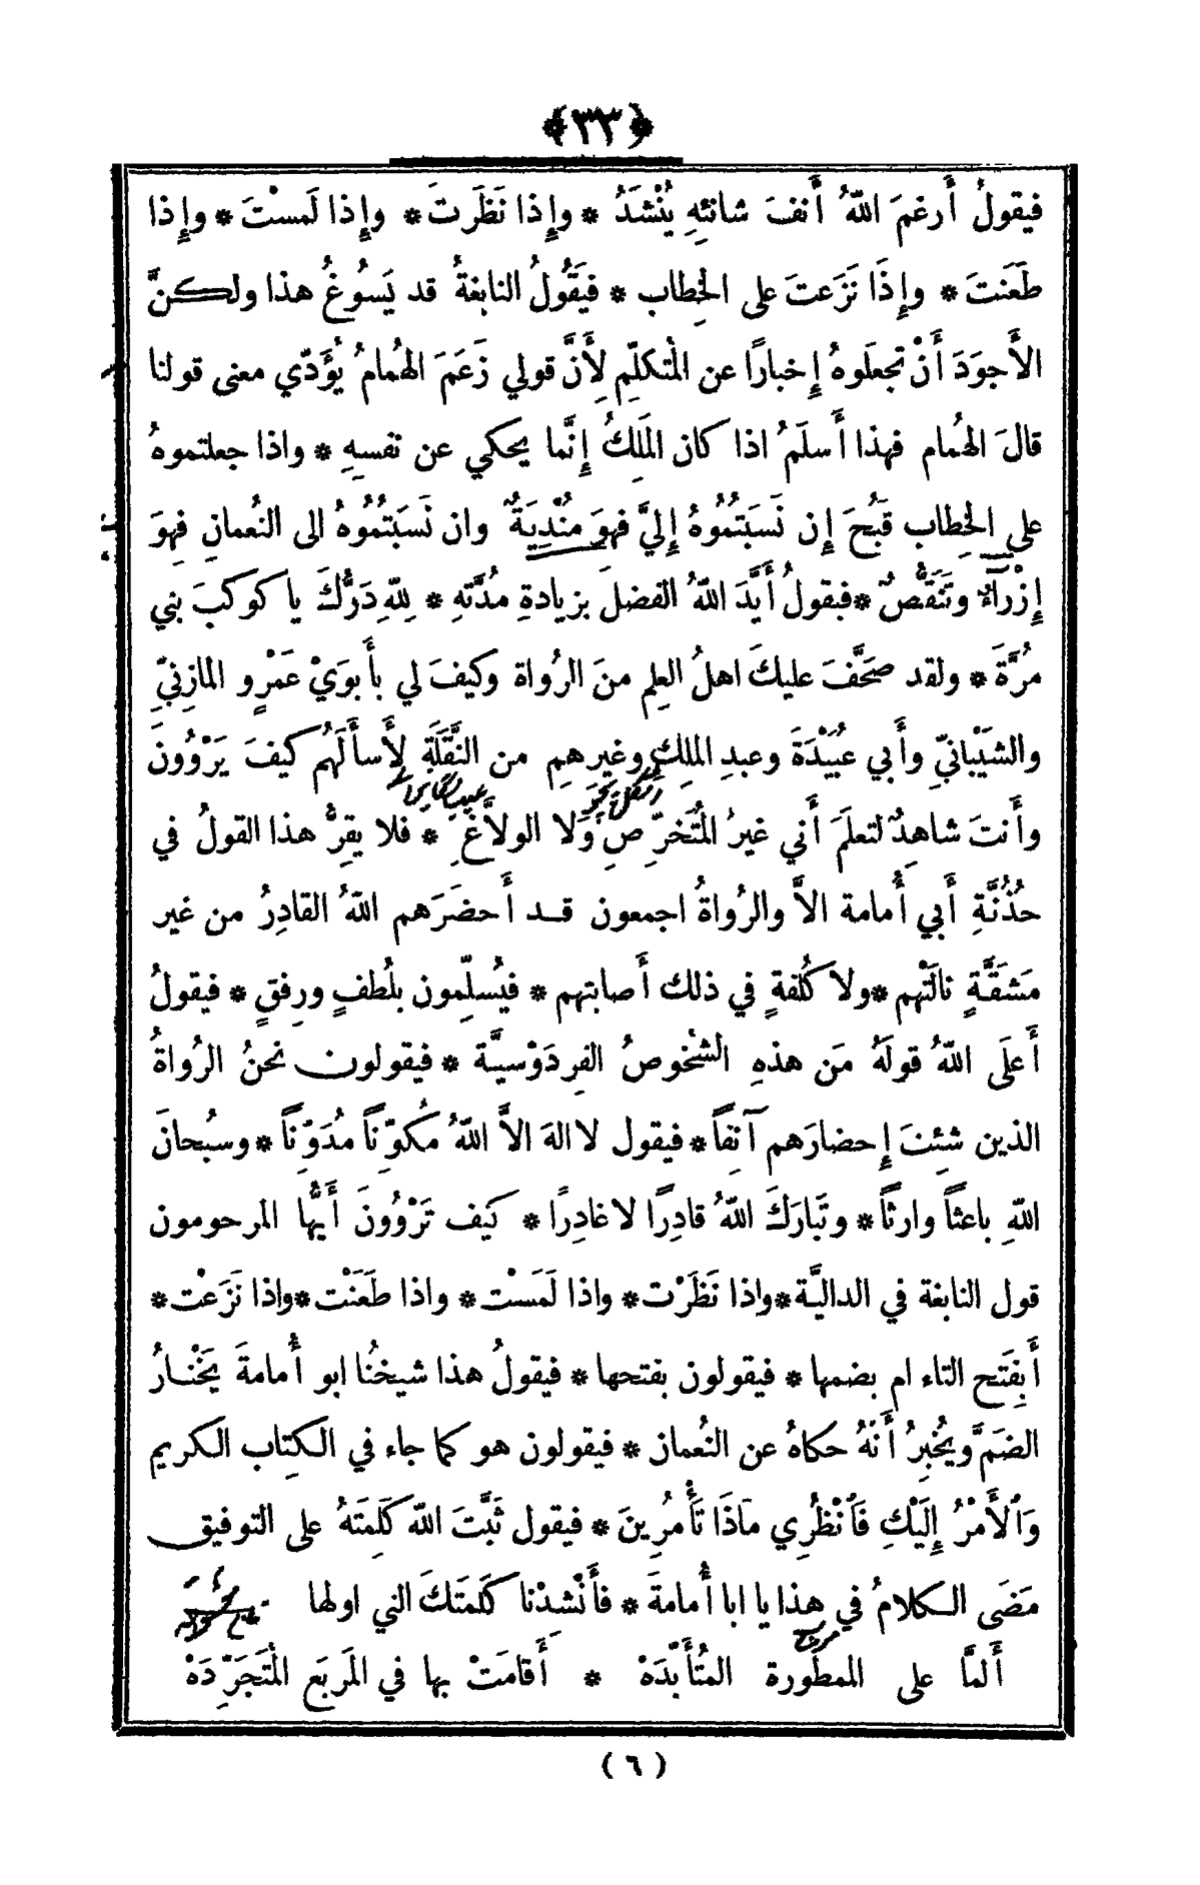 ﴿ ٣٣ ﴾
فيقولُ أَرغمَ اللّٰهُ أَنفَ شانئهِ يُنْشَدُ * وإِذا نَظَرتَ * وإِذا لَمسْتَ * وإِذا
طَعَنتَ * وإِذَا نَزَعتَ على الخِطاب * فيَقُولُ النابغةُ قد يَسُوغُ هذا ولكنَّ
الأَجوَدَ أَنْ تجعلَوهُ إِخبارًا عن المُتكلّمِ لِأَنَّ قولي زَعَمَ الهُمامُ يُؤَدّي معنى قولنا
قالَ الهُمام فهذا أَسلَمُ اذا كان المَلِكُ إِنَّما يحكي عن نفسهِ * واذا جعلتموهُ
على الخِطاب قَبُحَ إِن نَسَبَتُمُوهُ إِليَّ فهوَ مُنْدِيَةٌ وان نَسَبَتُمُوهُ الى النُعمانِ فهوَ
إِزْرَآءٌ وتَنَقُّصٌ * فيقولُ أَيَّدَ اللّٰهُ الفضلَ بزيادةِ مُدَّتهِ * لِلّٰهِ دَرُّكَ يا كوكبَ بني
مُرَّةَ * ولقد صَحَّفَ عليكَ اهلُ العِلمِ منَ الرُواة وكيفَ لي بأَبوَيْ عَمْرٍو المازِنيّ
والشَيْبانيّ وأَبي عُبَيْدَةَ وعبدِ المَلِكِ وغيرِهِم من النَّقَلَةِ لِأَسأَلَهُم كيفَ يَرْوُونَ
وأَنتَ شاهدٌ لتعلَمَ أَني غيرُ المُتَخَرّصِ وَلا الولاَّغِ * فلا يقِرُّ هذا القولُ في
حُذُنَّةِ أَبي أُمامة الاَّ والرُواةُ اجمعون قد أَحضَرَهم اللّٰهُ القادِرُ من غير
مَشَقَّةٍ نالَتْهم * ولا كُلفةٍ في ذلك أَصابتهم * فيُسلّمون بلُطفٍ ورِفقٍ * فيقولُ
أَعلَى اللّٰهُ قولَهُ مَن هذهِ الشُخوصُ الفِردَوْسيَّة * فيقولون نحنُ الرُواةُ
الذين شئِتَ إِحضارَهم آنِفاً * فيقول لا الهَ الاَّ اللّٰهُ مُكوّنِاً مُدَوّنِاً * وسبُحانَ
اللّٰهِ باعثِاً وارثِاً * وتَبارَكَ اللّٰهُ قادِرًا لا غادِرًا * كيف تَرْوُونَ أَيُّها المرحومون
قول النابغة في الداليَّة * واذا نَظَرْت * واذا لَمَسْت * واذا طَعَنْت * واذا نَزَعْت *
أَبِفَتح التاء ام بضمها * فيقولون بفتحها * فيقولُ هذا شيخُنا ابو أُمامةَ يَخْتارُ
الضَمَّ ويُخبِرُ أَنَّهُ حكاهُ عن النُعمان * فيقولون هو كما جاء في الكِتاب الكريم
وَٱلأَمْرُ إِلَيْكِ فَٱنْظُرِي مَاذَا تَأْمُرِينَ * فيقول ثَبَّتَ اللّٰه كَلِمتَهُ على التوفيق
مَضَى الكلامُ في هذا يا ابا أُمامةَ * فأَنْشِدْنا كَلَمتَكَ التي اولها
أَلمَّا على الممطورة المُتأَبّدَهْ * أَقامَتْ بها في المَربَعِ المُتَجَرّدَهْ
( ٦ )